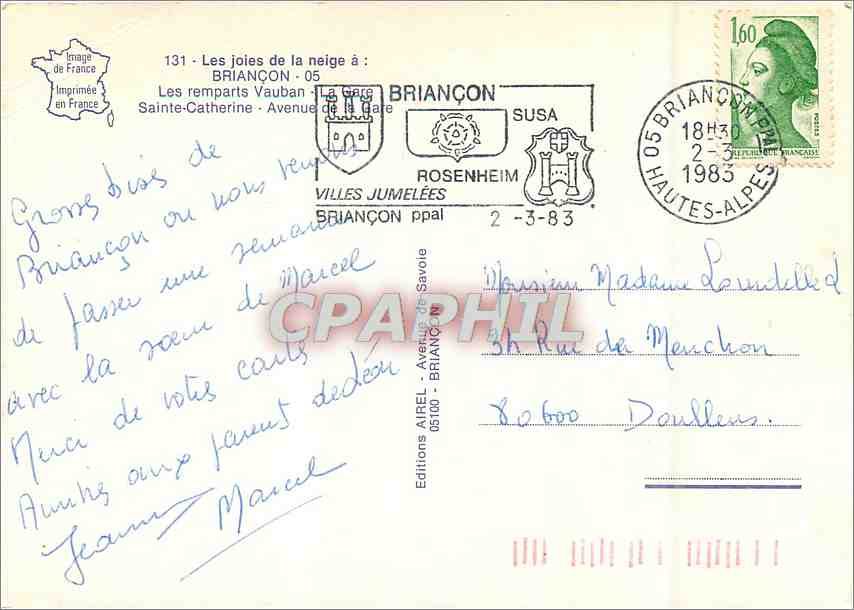 Image
de France
Imprimée
en France
131 - Les joies de la neige à :
BRIANÇON - 05
Les remparts Vauban - La Gare
Sainte-Catherine - Avenue de la Gare
BRIANÇON
SUSA
ROSENHEIM
VILLES JUMELÉES
BRIANÇON ppal 2 -3-83
05 BRIANÇON PPAL
18H30
2-3
1983
HAUTES-ALPES
1,60
POSTES
REPUBLIQUE FRANÇAISE
Grosses bises de
Briançon ou nous venons
de passer une semaine
avec la sœur de Marcel
Merci de votre carte
Amitiés aux parent de Léon
Jeanne Marcel
Editions AIREL - Avenue de Savoie
05100 - BRIANÇON
CPAPHIL
Monsieur Madame
Rue de
80600 Doullens.